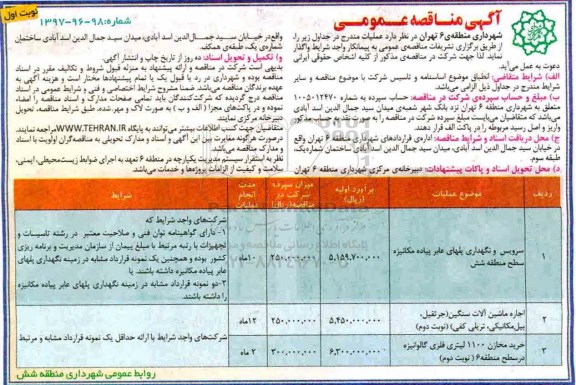 نوبت اول
آگهی مناقصه عمومی
شماره: ۹۸-۹۶-۱۳۹۷
شهرداری منطقه ۶ تهران در نظر دارد عملیات مندرج در جداول زیر را
از طریق برگزاری تشریفات مناقصه‌ی عمومی به پیمانکار واجد شرایط واگذار
نماید. لذا جهت شرکت در مناقصه‌ی مذکور از کلیه اشخاص حقوقی ایرانی
دعوت به عمل می‌آید.
الف) شرایط متقاضی: انطباق موضوع اساسنامه و تاسیس شرکت با موضوع مناقصه و سایر
شرایط مندرج در جداول ذیل الزامی می‌باشد.
ب) مبلغ و حساب سپرده‌ی شرکت در مناقصه: حساب سپرده به شماره ۱۰۰۵۰۱۲۴۷۰
متعلق به شهرداری منطقه ۶ تهران نزد بانک شهر شعبه‌ی میدان سید جمال الدین اسد آبادی
می‌باشد که متقاضیان می‌بایست مبلغ سپرده شرکت در مناقصه را به صورت نقد به حساب مذکور
واریز و اصل رسید مربوطه را در پاکت الف قرار دهند.
ج) محل دریافت اسناد و شرایط مناقصه: اداری قراردادهای شهرداری منطقه ۶ تهران واقع
در خیابان سید جمال الدین اسد آبادی، میدان سید جمال الدین اسد آبادی ساختمان شماره‌یک،
طبقه سوم.
د) محل تحویل اسناد و پاکات پیشنهادات: دبیرخانه‌ی مرکزی شهرداری منطقه ۶ تهران
واقع در خیابان سید جمال الدین اسد آبادی، میدان سید جمال الدین اسد آبادی ساختمان
شماره‌ی یک، طبقه‌ی همکف.
و) تکمیل و تحویل اسناد: ده روز از تاریخ چاپ و انتشار آگهی.
بدیهی است شرکت در مناقصه و ارائه پیشنهاد به منزله قبول شروط و تکالیف مقرر در اسناد
مناقصه بوده و شهرداری در رد یا قبول یک یا تمام پیشنهادها مختار است و هزینه آگهی به
عهده برندگان مناقصه می‌باشد. ضمنا مشروح شرایط اختصاصی و فنی و شرایط عمومی در اسناد
مناقصه درج گردیده که شرکت‌کنندگان باید تمامی صفحات مدارک و اسناد مناقصه را امضاء
نموده و در پاکت‌های مجزا (الف و ب) به صورت لاک و مهر شده، طبق شرایط مناقصه، تحویل
دبیرخانه مرکزی نمایند.
متقاضیان جهت کسب اطلاعات بیشتر می‌توانند به پایگاه WWW.TEHRAN.IR مراجعه نمایند.
درصورت هرگونه مغایرت بین این آگهی و اسناد و مدارک تحویلی به مناقصه‌گران اولویت با اسناد
و مدارک مناقصه می‌باشد.
نظر به استقرار سیستم مدیریت یکپارچه در منطقه ۶ تعهد به اجرای ضوابط زیست‌محیطی، ایمنی،
سلامت و کیفیت از الزامات پروژه‌ها و خدمات می‌باشد.
ردیف موضوع عملیات برآورد اولیه (ریال) میزان سپرده شرکت در مناقصه (ریال) مدت انجام عملیات شرایط
۱ سرویس و نگهداری پلهای عابر پیاده مکانیزه سطح منطقه شش ۵,۱۵۹,۷۰۰,۰۰۰ ۲۵۰,۰۰۰,۰۰۰ ۱۰ ماه
شرکت‌های واجد شرایط که
۱- دارای گواهینامه توان فنی و صلاحیت معتبر در رشته تاسیسات و
تجهیزات با رتبه مرتبط با مبلغ پیمان از سازمان مدیریت و برنامه ریزی
کشور بوده و همچنین یک نمونه قرارداد مشابه در زمینه نگهداری پلهای
عابر پیاده مکانیزه داشته باشند. یا
۲-دو نمونه قرارداد مشابه در زمینه نگهداری پلهای عابر پیاده مکانیزه
را داشته باشند
۲ اجاره ماشین آلات سنگین(جرثقیل، بیل‌مکانیکی، تریلی کفی) (نوبت دوم) ۵,۴۵۰,۰۰۰,۰۰۰ ۲۵۰,۰۰۰,۰۰۰ ۱۲ماه
شرکت‌های واجد شرایط با ارائه حداقل یک نمونه قرارداد مشابه و مرتبط
۳ خرید مخازن ۱۱۰۰ لیتری فلزی گالوانیزه درسطح منطقه۶ (نوبت دوم) ۶,۳۰۰,۰۰۰,۰۰۰ ۳۰۰,۰۰۰,۰۰۰ ۲ ماه
روابط عمومی شهرداری منطقه شش